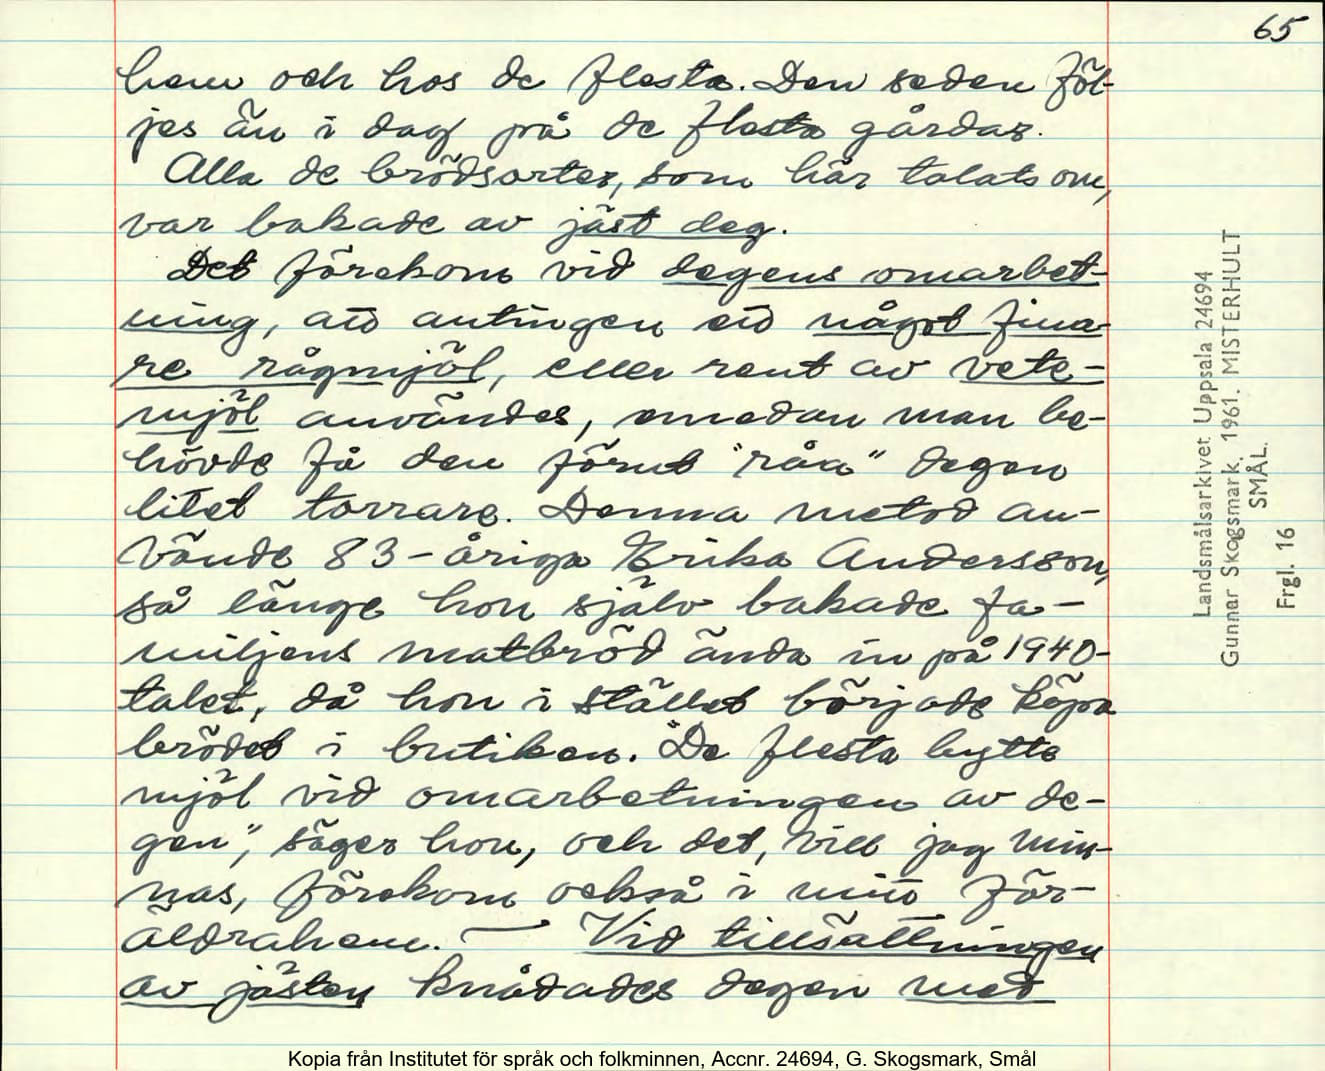 65
hem och hos de flesta. Den seden föl-
jes än i dag på de flesta gårdar.
Alla de brödsorter, som här talats om,
var bakade av jäst deg.
Det förekom vid degens omarbet-
ning, att antingen ett något fina-
re rågmjöl, eller rent av vete-
mjöl användes, emedan man be-
hövde få den förut "råa" degen
litet torrare. Denna metod an-
vände 83-åriga Erika Andersson,
så länge hon själv bakade fa-
miljens matbröd ända in på 1940-
talet, då hon i stället började köpa
brödet i butiken. "De flesta bytte
mjöl vid omarbetningen av de-
gen", säger hon, och det, vill jag min-
nas, förekom också i mitt för-
äldrahem. — Vid tillsättningen
av jästen knådades degen med
Landsmålsarkivet Uppsala 24694
Gunnar Skogsmark. 1961. MISTERHULT
SMÅL.
Frgl. 16
Kopia från Institutet för språk och folkminnen, Accnr. 24694, G. Skogsmark, Smål